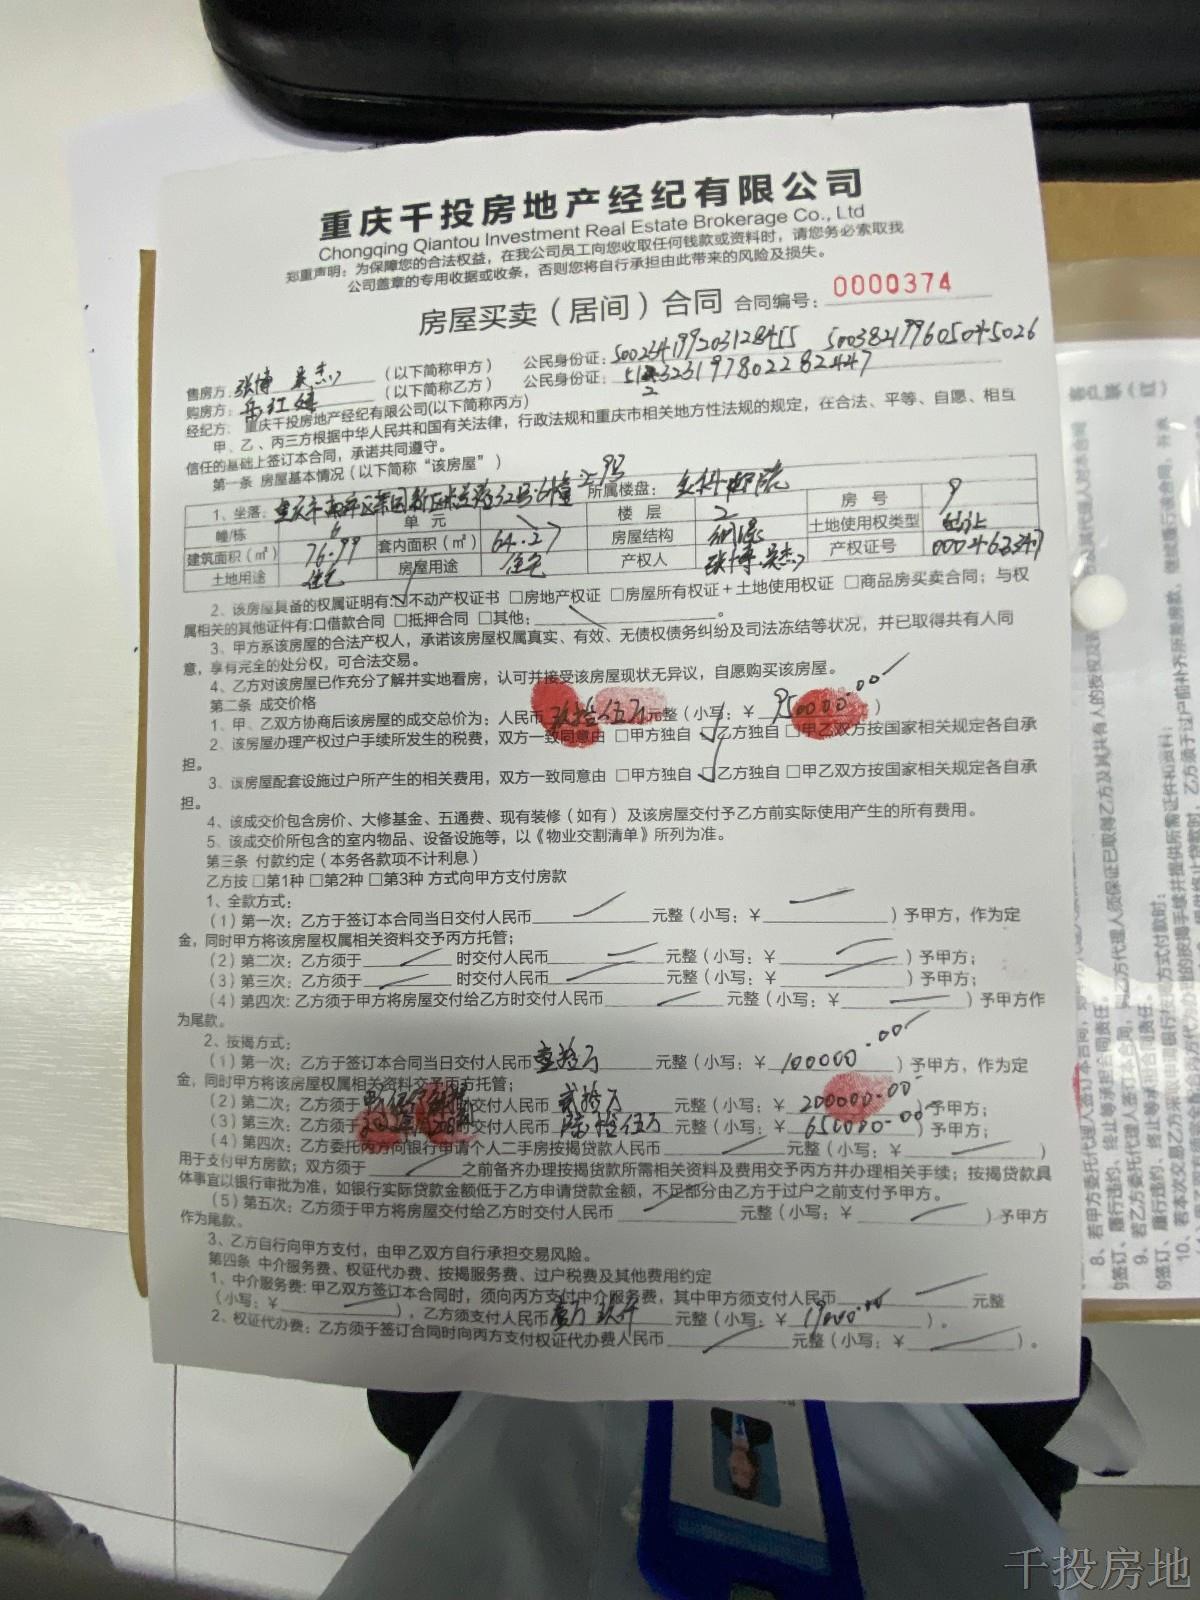 重庆千投房地产经纪有限公司
Chongqing Qiantou Investment Real Estate Brokerage Co., Ltd
郑重声明：为保障您的合法权益，在我公司员工向您收取任何钱款或资料时，请您务必索取我
公司盖章的专用收据或收条，否则您将自行承担由此带来的风险及损失。
房屋买卖（居间）合同 合同编号：0000374
售房方：张博 吴杰 （以下简称甲方） 公民身份证：500234199203128455 500382199605045026
购房方： （以下简称乙方） 公民身份证：512323197802282447
经纪方：重庆千投房地产经纪有限公司(以下简称丙方)
甲、乙、丙三方根据中华人民共和国有关法律，行政法规和重庆市相关地方性法规的规定，在合法、平等、自愿、相互
信任的基础上签订本合同，承诺共同遵守。
第一条 房屋基本情况（以下简称“该房屋”）
1、坐落：重庆市 32号6幢2-9号 所属楼盘： 房号 9
幢/栋 6 单元 楼层 2 土地使用权类型 出让
建筑面积（㎡） 76.99 套内面积（㎡） 64.27 房屋结构 钢混 产权证号 000463347
土地用途 住宅 房屋用途 住宅 产权人 张博、吴杰
2、该房屋具备的权属证明有:☑不动产权证书 □房地产权证 □房屋所有权证＋土地使用权证 □商品房买卖合同；与权
属相关的其他证件有:口借款合同 □抵押合同 □其他：。
3、甲方系该房屋的合法产权人，承诺该房屋权属真实、有效、无债权债务纠纷及司法冻结等状况，并已取得共有人同
意，享有完全的处分权，可合法交易。
4、乙方对该房屋已作充分了解并实地看房，认可并接受该房屋现状无异议，自愿购买该房屋。
第二条 成交价格
1、甲、乙双方协商后该房屋的成交总价为：人民币 玖拾伍万 元整（小写：￥950000.00）
2、该房屋办理产权过户手续所发生的税费，双方一致同意由 □甲方独自 ☑乙方独自 □甲乙双方按国家相关规定各自承
担。
3、该房屋配套设施过户所产生的相关费用，双方一致同意由 □甲方独自 ☑乙方独自 □甲乙双方按国家相关规定各自承
担。
4、该成交价包含房价、大修基金、五通费、现有装修（如有）及该房屋交付予乙方前实际使用产生的所有费用。
5、该成交价所包含的室内物品、设备设施等，以《物业交割清单》所列为准。
第三条 付款约定（本务各款项不计利息）
乙方按 □第1种 □第2种 □第3种 方式向甲方支付房款
1、全款方式：
（1）第一次：乙方于签订本合同当日交付人民币 元整（小写：￥ ）予甲方，作为定
金，同时甲方将该房屋权属相关资料交予丙方托管；
（2）第二次：乙方须于 时交付人民币 元整（小写：￥ ）予甲方；
（3）第三次：乙方须于 时交付人民币 元整（小写：￥ ）予甲方；
（4）第四次：乙方须于甲方将房屋交付给乙方时交付人民币 元整（小写：￥ ）予甲方作
为尾款。
2、按揭方式：
（1）第一次：乙方于签订本合同当日交付人民币 壹拾万 元整（小写：￥100000.00）予甲方，作为定
金，同时甲方将该房屋权属相关资料交予丙方托管；
（2）第二次：乙方须于 时交付人民币 贰拾万 元整（小写：￥200000.00）予甲方；
（3）第三次：乙方须于 时交付人民币 陆拾伍万 元整（小写：￥650000.00）予甲方；
（4）第四次：乙方委托丙方向银行申请个人二手房按揭贷款人民币 元整（小写：￥ ）
用于支付甲方房款；双方须于 之前备齐办理按揭贷款所需相关资料及费用交予丙方并办理相关手续；按揭贷款具
体事宜以银行审批为准，如银行实际贷款金额低于乙方申请贷款金额，不足部分由乙方于过户之前支付予甲方。
（5）第五次：乙方须于甲方将房屋交付给乙方时交付人民币 元整（小写：￥ ）予甲方
作为尾款。
3、乙方自行向甲方支付，由甲乙双方自行承担交易风险。
第四条 中介服务费、权证代办费、按揭服务费、过户税费及其他费用约定
1、中介服务费：甲乙双方签订本合同时，须向丙方支付中介服务费，其中甲方须支付人民币 元整
（小写：￥ ），乙方须支付人民币 壹万玖仟 元整（小写：￥19000.00）。
2、权证代办费：乙方须于签订合同时向丙方支付权证代办费人民币 元整（小写：￥ ）。
8、若甲方委托代理人签订本合同，
的签订、履行违约、终止等承担合同责任。
9、若乙方委托代理人签订本合同，
的签订、履行违约、终止等承担合同责任。
千投房地